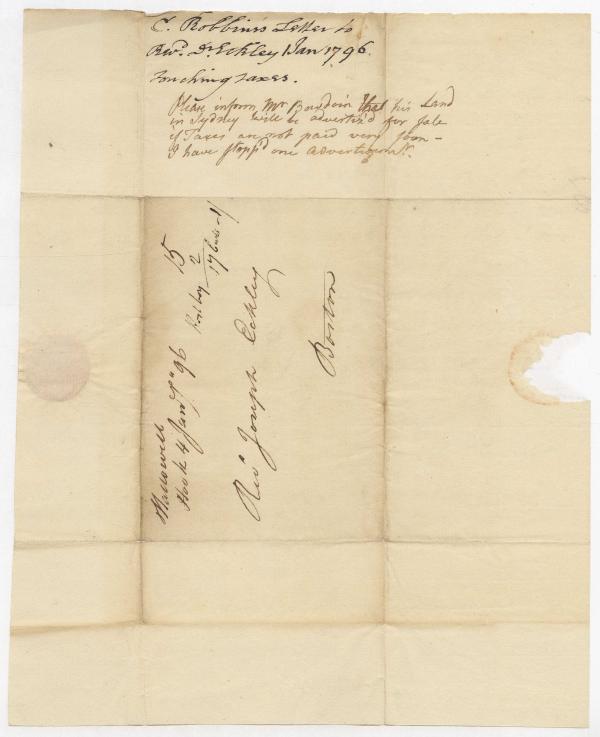 C. Robbins's Letter to
Revd. Dr Eckley 1 Jan 1796.
Touching Taxes.
Please inform Mr Bowdoin that his Land
in Sydney will be advertiz'd for Sale
if Taxes are not paid very soon -
I have stopp'd one advertisemt.
Hallowell
Hook 4 Jany 96
15
Post boy 2
17
Revd Joseph Eckley
Boston